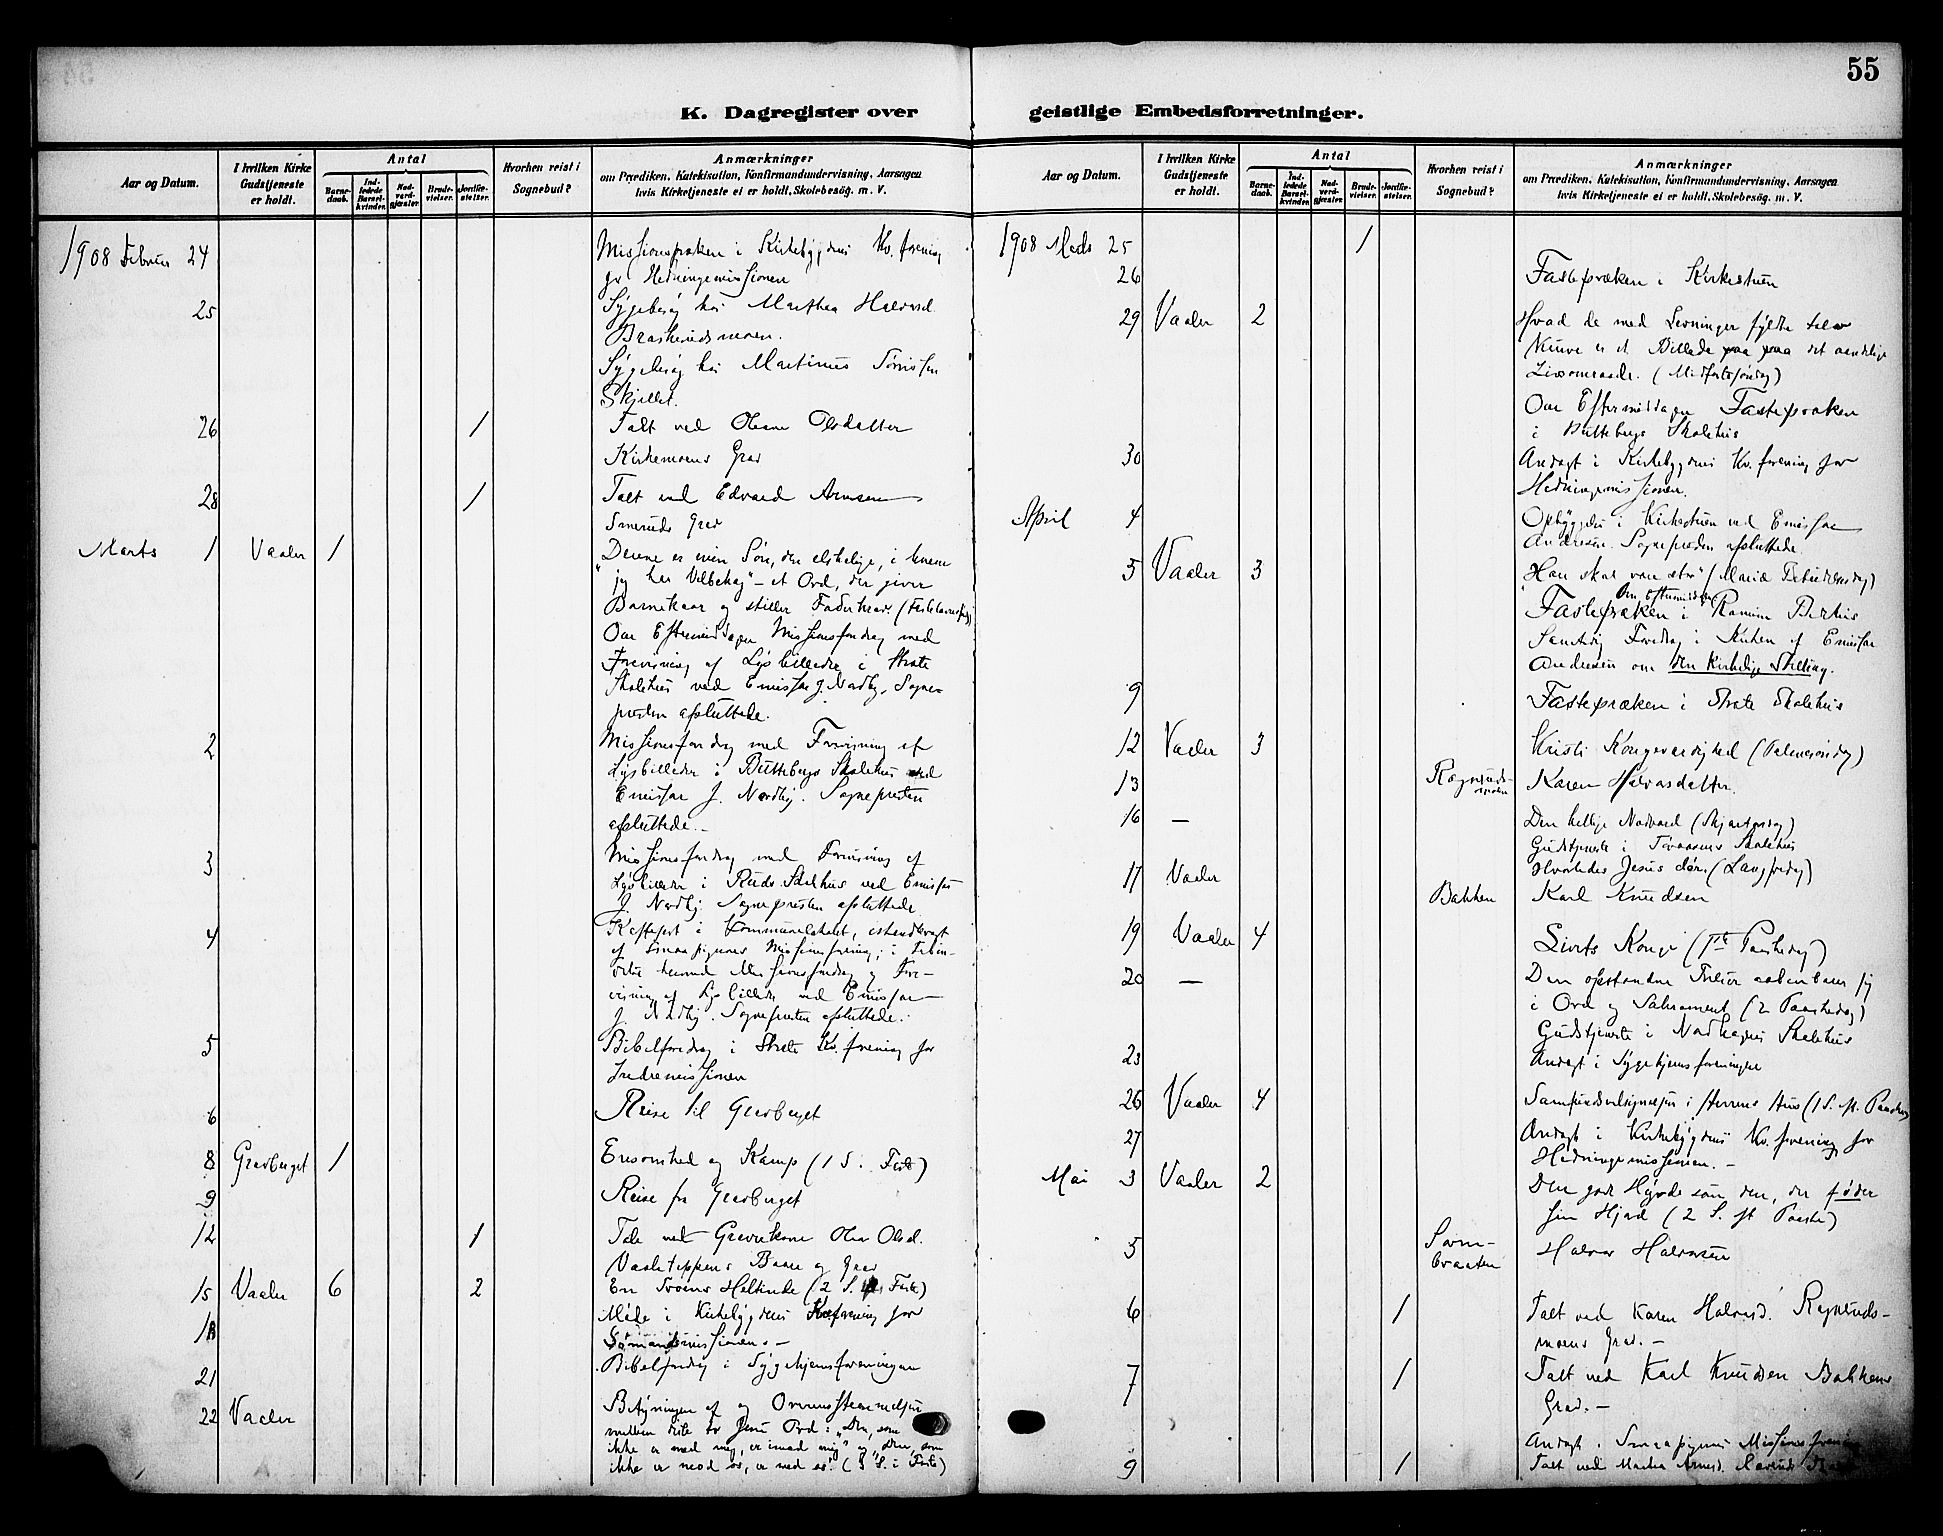 55
K. Dagregister over geistlige Embedsforretninger.
Aar og Datum.
I hvilken Kirke Gudstjeneste er holdt.
Antal
Barnedaab.
Indledede Barselkvinder.
Nadverdgjæster.
Brudevielser.
Jordfæstelser.
Hvorhen reist i Sognebud?
Anmærkninger
om Prædiken, Katekisation, Konfirmandundervisning, Aarsagen
hvis Kirketjeneste ei er holdt, Skolebesøg. m. V.
1908 Februar 24 Missionspræken i Kirkebygdens Kv. forening
for Hedningemissionen
25 Sygebesøg hos Marthea Halvorsd.
Braskerudsmoen.
Sygebesøg hos Martinus
Skjellet.
26 1 Talt ved Oleane Olsdatter
Kirkemoens Grav
28 1 Talt ved Edvard Arnesen
Smeruds Grav
Marts 1 Vaaler 1 "Denne er min Søn, den elskelige, i hvem
jeg har Velbehag" – et Ord, der giver
Barnekaar og stiller Faderkrav. (Fastelavnssøndag)
Om Eftermiddagen Missionsforedrag med
Forevisning af Lysbilleder i Strate
Skolehus ved Emissær J. Nordby. Sogne-
presten afsluttede.
2 Missionsforedrag med Forevisning af
Lysbilleder i Butteberg Skolehus ved
Emissær J. Nordby. Sognepresten
afsluttede. –
3 Missionsforedrag med Forevisning af
Lysbilleder i Ruds Skolehus ved Emissær
J. Nordby. Sognepresten afsluttede.
4 Kaffefest i Kommunelokalet, istandbragt
af Smaapigernes Missionsforening; i Forbin-
delse hermed Missionsforedrag og Fore-
visning af Lysbilleder ved Emissær
J. Nordby. Sognepresten afsluttede.
5 Bibelforedrag i Strate Kv. forening for
Indremissionen
6 Reise til Gravberget
8 Gravberget 1 Ensomhed og Kamp (1 S. i Faste)
9 Reise fra Gravberget
12 1 Tale ved Gaardkone Olea Olsd.
Baare og Grav
15 Vaaler 6 2 En Troens Heltinde (2 S. i Faste)
18 Møde i Kirkebygdens Kv. forening for
Sømandsmissionen. –
21 Bibelforedrag i Sygehjemsforeningen
22 Vaaler Betydningen af og Overensstemmelsen
mellem disse to Jesu Ord: "Den, som
ikke er med mig, er imod mig" og "Den, som
ikke er mod os, er med os". (3 S. i Faste)
Aar og Datum.
I hvilken Kirke Gudstjeneste er holdt.
Antal
Barnedaab.
Indledede Barselkvinder.
Nadverdgjæster.
Brudevielser.
Jordfæstelser.
Hvorhen reist i Sognebud?
Anmærkninger
om Prædiken, Katekisation, Konfirmandundervisning, Aarsagen
hvis Kirketjeneste ei er holdt, Skolebesøg. m. V.
1908 Marts 25 1
26 Fastepræken i Kirkestuen
29 Vaaler 2 Hvad de med Levninger fyldte tolv
Kurve er et Billede paa paa det aandelige
Livsomraade. (Midfastesøndag)
Om Eftermiddagen Fastepræken
i Butteberg Skolehus
30 Andagt i Kirkebygdens Kv. forening for
Hedningemissionen.
April 4 Opbyggelse i Kirkestuen ved Emissær
Andresen. Sognepresten afsluttede.
5 Vaaler 3 "Han skal være stor" (Mariæ Bebudelsesdag)
Om Eftermiddagen
Fastepræken i
Samtidig Foredrag i Kirken af Emissær
Andresen om den kirkelige Stilling.
9 Fastepræken i Strate Skolehus
12 Vaaler 3 Kristi Kongeværdighed (Palmesøndag)
13 Karen Halvorsdatter.
16 — Den hellige Nadverd (Skjærtorsdag)
Gudstjeneste i Skolehus
17 Vaaler Hvorledes Jesus døde. (Langfredag)
Bakken Karl Knudsen
19 Vaaler 4 Livets Konge (1ste Paaskedag)
20 — Den opstandne Frelser aabenbarer sig
i Ord og Sakrament (2 Paaskedag)
Gudstjeneste i Nordhagens Skolehus
23 Andagt i Sygehjemsforeningen
26 Vaaler 4 Samfundsvelsignelsen i Herrens Hus (1 S. ft. Paaske)
27 Andagt i Kirkebygdens Kv. forening for
Hedningemissionen. –
Mai 3 Vaaler 2 Den gode Hyrde som den, der føder
sin Hjord (2 S. ft Paaske)
5 Halvor Halvorsen
6 1 Talt ved Karen Halvorsd. Rognerids-
moens Grav. –
7 1 Talt ved Karl Knudsen Bakkens
Grav. –
Andagt i Smaapigernes Missionsforening
9 1 Talt ved Arnesd.